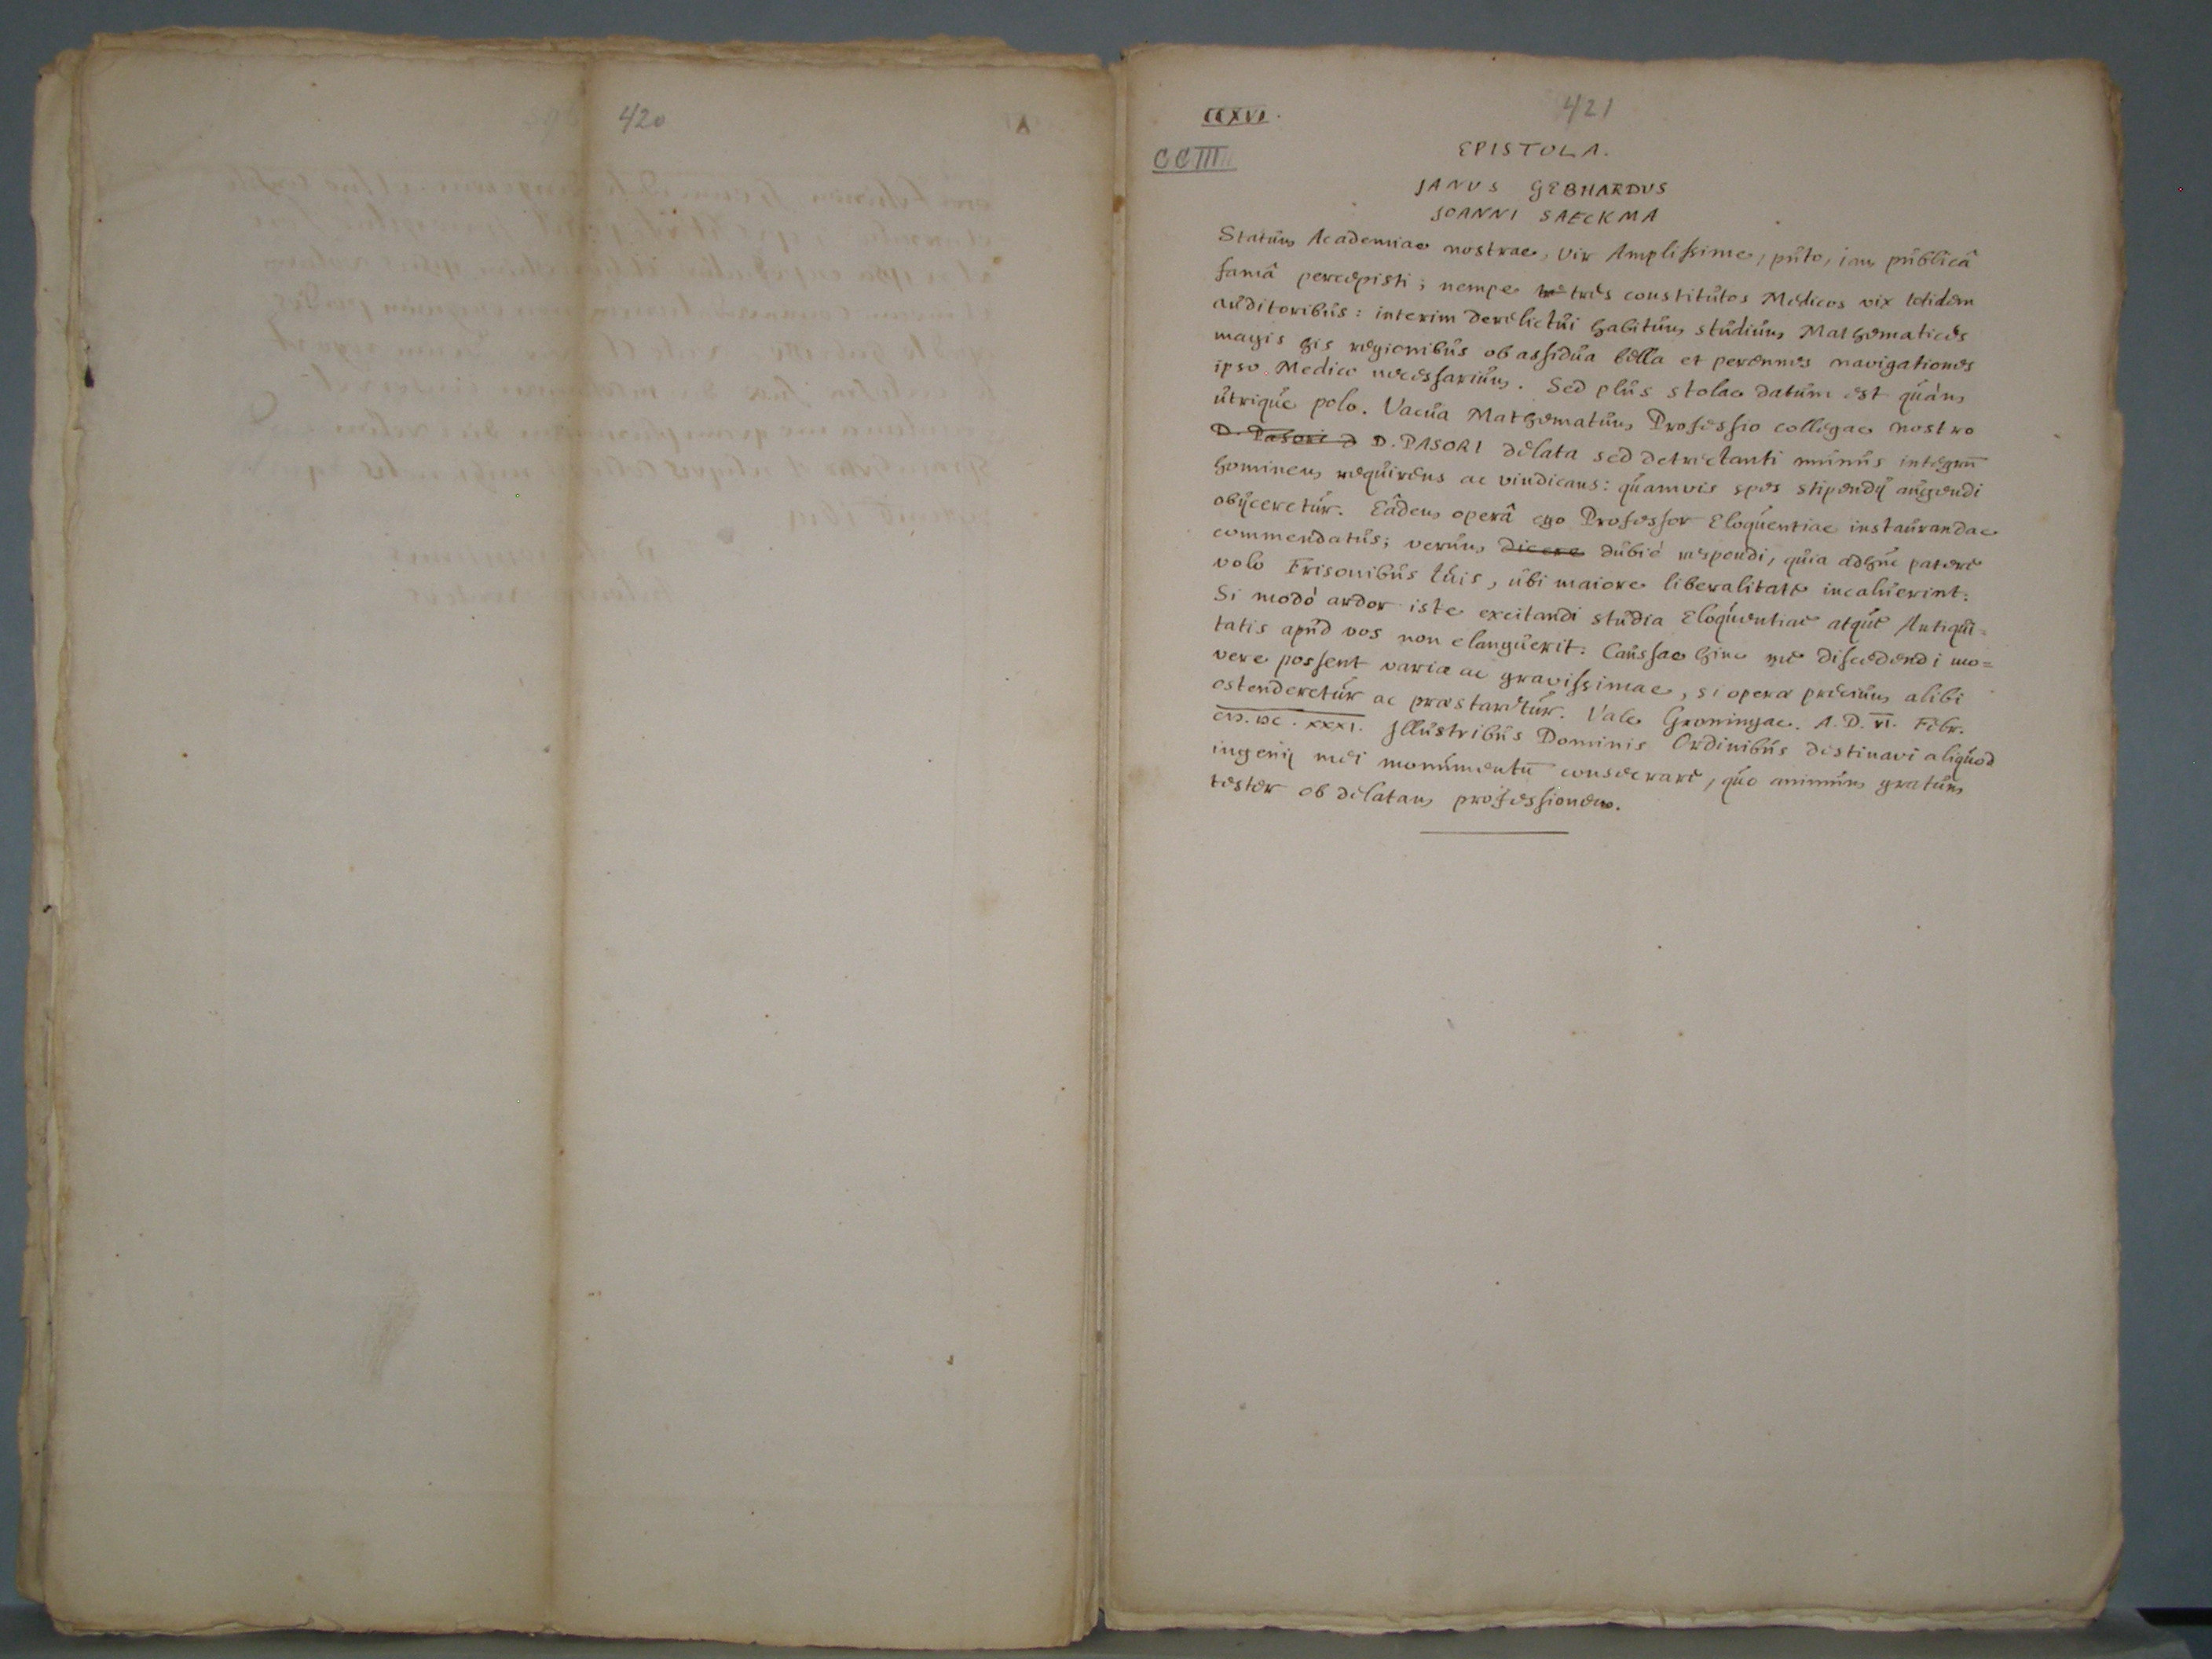 420
A
CCXVI.
421
CCIII
EPISTOLA.
JANUS GEBHARDUS
JOANNI SAECKMA
Statum Academiae nostrae, Vir Amplissime, puto, iam publicâ
famâ percepisti; nempe tre tres constitutos Medicos vix totidem
auditoribus: interim derelictui habitum studium Mathematices
magis his regionibus ob assidua bella et perennes navigationes
ipso Medico necessarium. Sed plus stolae datum est quàm
utrique polo. Vacua Mathematum Professio collegae nostro
D. Pasori D. PASORI delata sed detrectanti munus integrū
hominem requirens ac vindicans: quamvis spes stipendij augendi
obijceretur. Eâdem operâ ego Professor Eloquentiae instaurandae
commendatus; verum dicere dubiè respondi, quia adhuc patere
volo Frisonibus tuis, ubi maiore liberalitate incaluerint:
Si modò ardor iste excitandi studia Eloquentiae atque Antiqui=
tatis apud vos non elanguerit. Caussae hinc me discedendi mo=
vere possent variae ac gravissimae, si operae precium alibi
ostenderetur ac praestaretur. Vale Groningae. A. D. VI. Febr.
CIↃ. IↃC. XXXI. Illustribus Dominis Ordinibus destinavi aliquod
ingenij mei monumentū consecrare, quo animum gratum
tester ob delatam professionem.